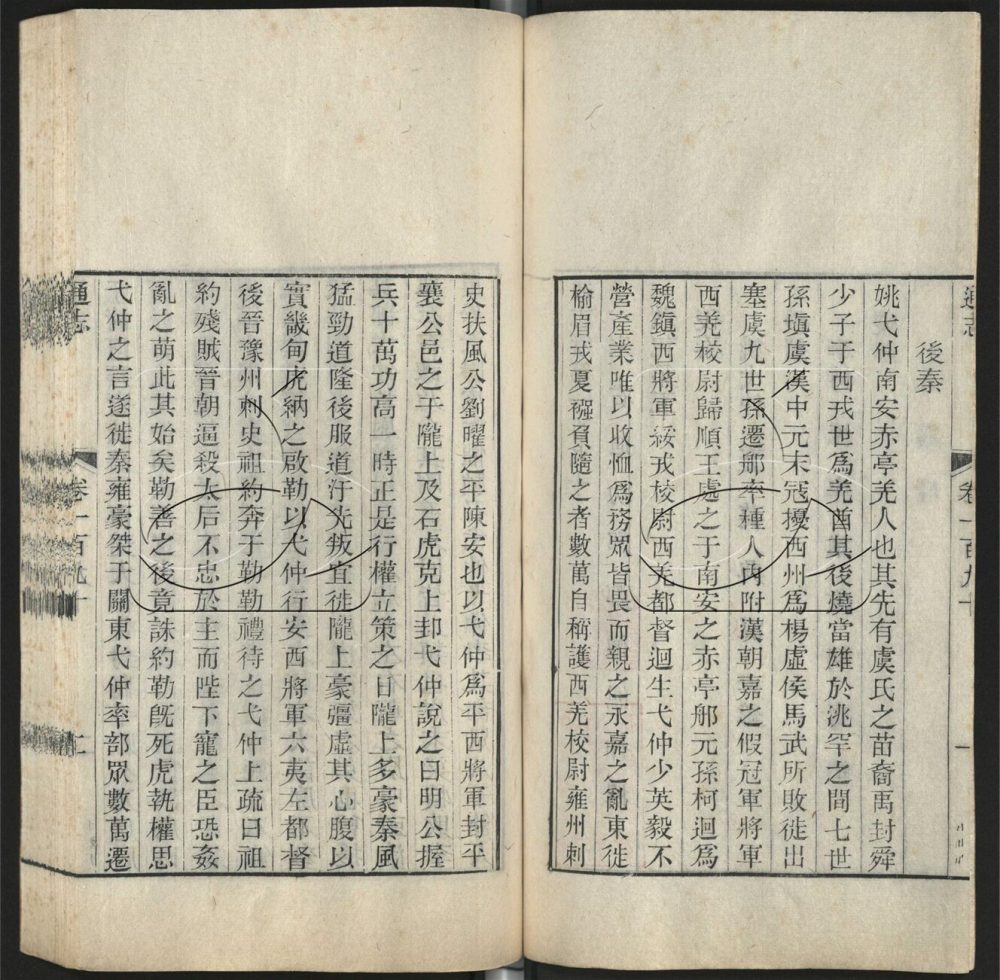 通志
卷一百九十
一
後秦
姚弋仲南安赤亭羌人也其先有虞氏之苗裔禹封舜
少子于西戎世爲羌酋其後燒當雄於洮罕之間七世
孫塡虞漢中元末寇擾西州爲楊虛侯馬武所敗徙出
塞虞九世孫遷那率種人內附漢朝嘉之假冠軍將軍
西羌校尉歸順王處之于南安之赤亭那元孫柯迴爲
魏鎮西將軍綏戎校尉西羌都督迴生弋仲少英毅不
營產業唯以收恤爲務眾皆畏而親之永嘉之亂東徙
榆眉戎夏襁負隨之者數萬自稱護西羌校尉雍州刺
史扶風公劉曜之平陳安也以弋仲爲平西將軍封平
襄公邑之于隴上及石虎克上邽弋仲說之曰明公握
兵十萬功高一時正是行權立策之日隴上多豪秦風
猛勁道隆後服道洿先叛宜徙隴上豪彊虛其心腹以
實畿甸虎納之啟勒以弋仲行安西將軍六夷左都督
後晉豫州刺史祖約奔于勒勒禮待之弋仲上疏曰祖
約殘賊晉朝逼殺太后不忠於主而陛下寵之臣恐姦
亂之萌此其始矣勒善之後竟誅約勒旣死虎執權思
弋仲之言遂徙秦雍豪桀于關東弋仲率部眾數萬遷
通志
卷一百九十